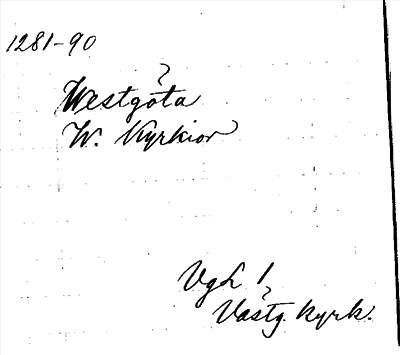 1281-90
Westgöta
W. Kyrkior
VgL 1
Västg. kyrk.